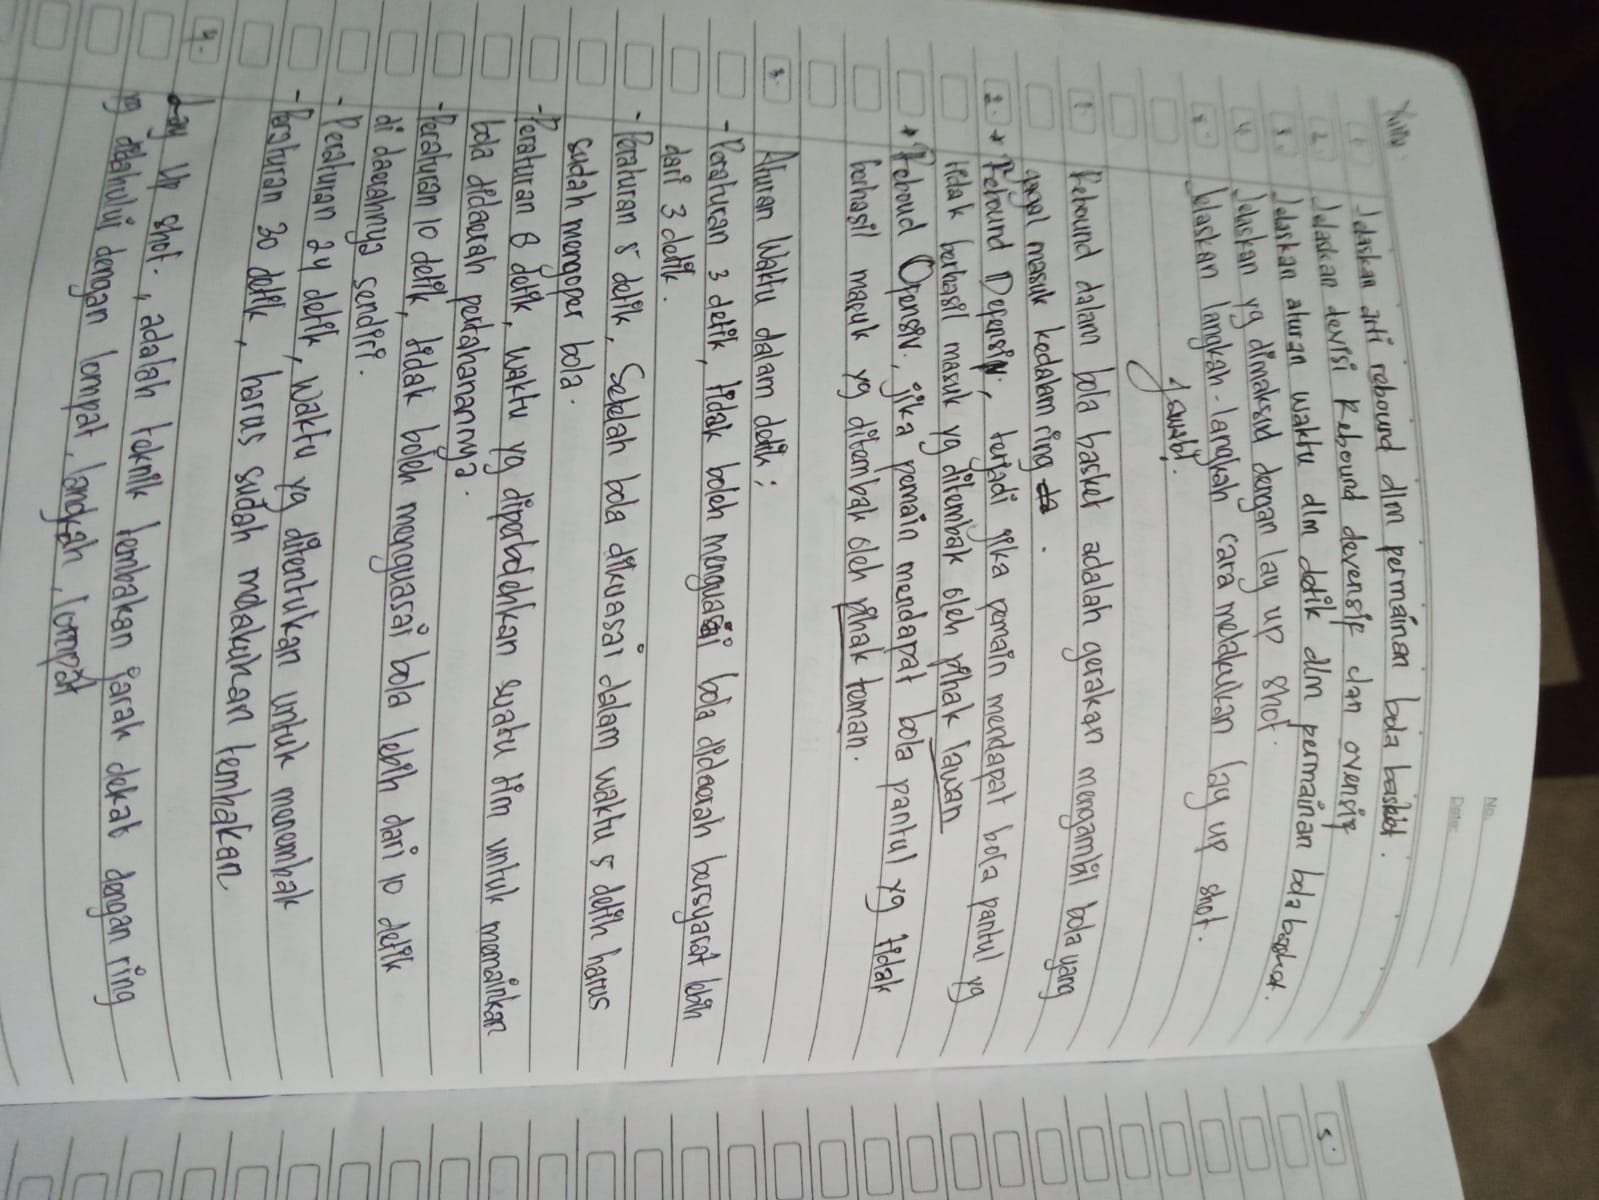 No.
Date:
1. Jelaskan arti rebound dlm permainan bola basket.
2. Jelaskan devisi Rebound devensif dan ovensif
3. Jelaskan aturan waktu dlm detik dlm permainan bola basket.
4. Jelaskan yg dimaksud dengan lay up shot.
5. Jelaskan langkah-langkah cara melakukan lay up shot.
Jawab!.
1. Rebound dalam bola basket adalah gerakan mengambil bola yang
gagal masuk kedalam ring da .
2. * Rebound Defensiv, terjadi jika pemain mendapat bola pantul yg
tidak berhasil masuk yg ditembak oleh pihak lawan
* Reboud Ofensiv, jika pemain mendapat bola pantul yg tidak
berhasil masuk yg ditembak oleh pihak teman.
3. Aturan Waktu dalam detik ;
- Peraturan 3 detik, tidak boleh menguasai bola didaerah bersyarat lebih
dari 3 detik.
- Peraturan 5 detik, Setelah bola dikuasai dalam waktu 5 detik harus
sudah mengoper bola.
- Peraturan 8 detik, waktu yg diperbolehkan suatu tim untuk memainkan
bola didaerah pertahanannya.
- Peraturan 10 detik, tidak boleh menguasai bola lebih dari 10 detik
di daerahnya sendiri.
- Peraturan 24 detik, waktu yg ditentukan untuk menembak
- Peraturan 30 detik, harus sudah melakukan tembakan
4. Lay Up shot., adalah teknik tembakan jarak dekat dengan ring
yg didahului dengan lompat, langkah, lompat
5.